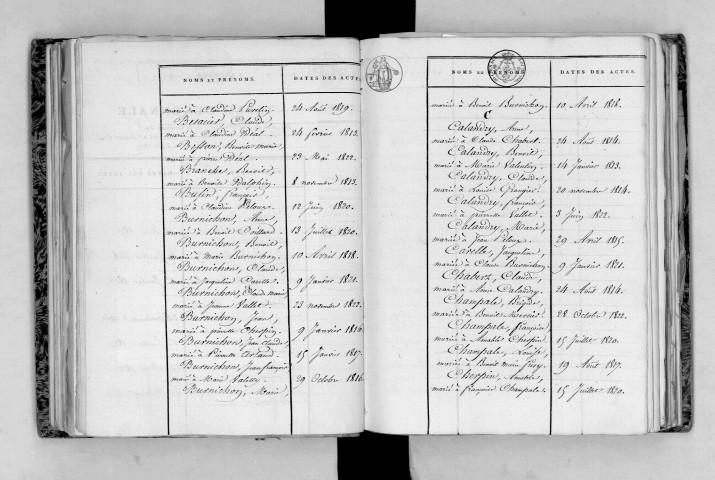 NOMS ET PRÉNOMS. DATES DES ACTES.
marié à Claudine 24 Août 1819.
Besacier, Claude
marié à Claudine Déal. 24 février 1813.
Besson, Benoit marie,
marié à Déal. 23 Mai 1822.
Branche, Benoit,
marié à Benoite 8 novembre 1813.
françois,
marié à Claudine 12 Juin 1820.
Burnichon, Anne,
mariée à Benoit 13 Juillet 1820.
Burnichon, Benoit,
marié à Marie Burnichon. 10 Avril 1818.
Burnichon, Claude,
marié à Jacqueline Carelle. 9 Janvier 1821.
Burnichon, Claude marie,
marié à Jeanne Vallet. 23 novembre 1822.
Burnichon, Jean,
marié à pierrette Cherpin. 9 Janvier 1810.
Burnichon, Jean Claude,
marié à Pierrette 15 Janvier 1817.
Burnichon, Jean françois,
marié à Marie 29 Octobre 1816.
Burnichon, Marie,
NOMS ET PRÉNOMS. DATES DES ACTES.
mariée à Benoit Burnichon. 10 Avril 1818.
C
Calandry, Anne,
mariée à Claude Chabert. 24 Août 1814.
Calandry, Benoit,
marié à Marie Valentin. 14 Janvier 1813.
Calandry, Claude,
marié à Louise 20 novembre 1814.
Calandry, françois,
marié à pierrette Vallet. 3 Juin 1822.
Calandry, Marie,
mariée à Jean 29 Avril 1815.
Carelle, Jacqueline,
mariée à Claude Burnichon. 9 Janvier 1821.
Chabert, Claude,
marié à Anne Calandry. 24 Août 1814.
Champale, Brigide,
mariée à Benoit Mercier. 28 Octobre 1812.
Champale, françoise,
mariée à Amable Cherpin. 15 Juillet 1820.
Champale, Louise,
mariée à Benoit marie 19 Août 1817.
Cherpin, Amable,
marié à françoise Champale. 15 Juillet 1820.